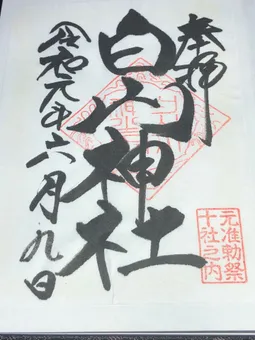 奉拝
白山神社
令和元年六月九日
元准勅祭
十社之内